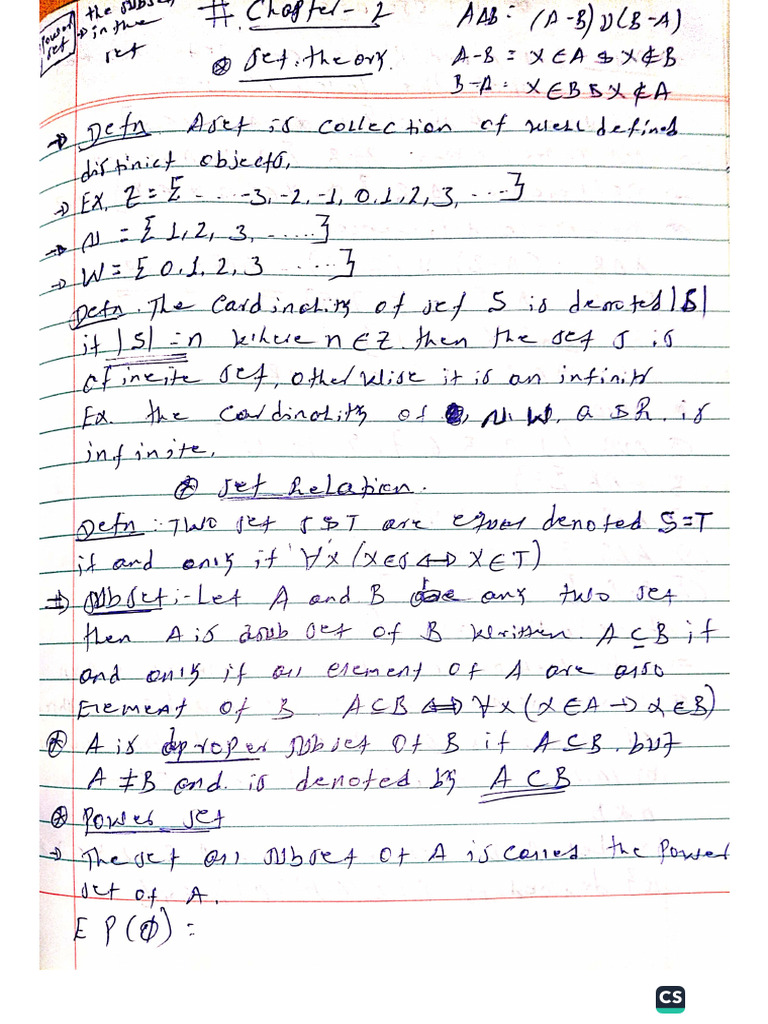 Power set
the subset
→ in the
set
# Chapter - 2
⊛ Set theory.
AΔB = (A-B) ∪ (B-A)
A-B = x∈A & x∉B
B-A: x∈B & x∉A
→ Defn A set is collection of well defined
distinict objects.
→ Ex, Z = { . . ....-3, -2, -1, 0, 1, 2, 3, ....}
→ N = {1, 2, 3, ......}
→ W = {0, 1, 2, 3 .....}
Defn. The Cardinality of set S is denoted |S|
if |S| = n where n∈Z. then the set S is
a finite set, otherwise it is an infinity
Ex. the cardinality of N. W. Q & R. is
infinite.
⊛ Set Relation.
Defn: Two set S & T are equal denoted S=T
if and only if ∀x (x∈S ↔ x∈T)
⇒ Subset:- Let A and B be any two set
then A is a sub set of B written. A⊆B if
and only if all element of A are also
Element of B A⊆B ⇔ ∀x (x∈A → x∈B)
⊛ A is proper subset of B if A⊆B. but
A≠B and. is denoted by A⊂B
⊛ Power set
→ The set all subset of A is called the Power
set of A.
E P(∅) =
CS